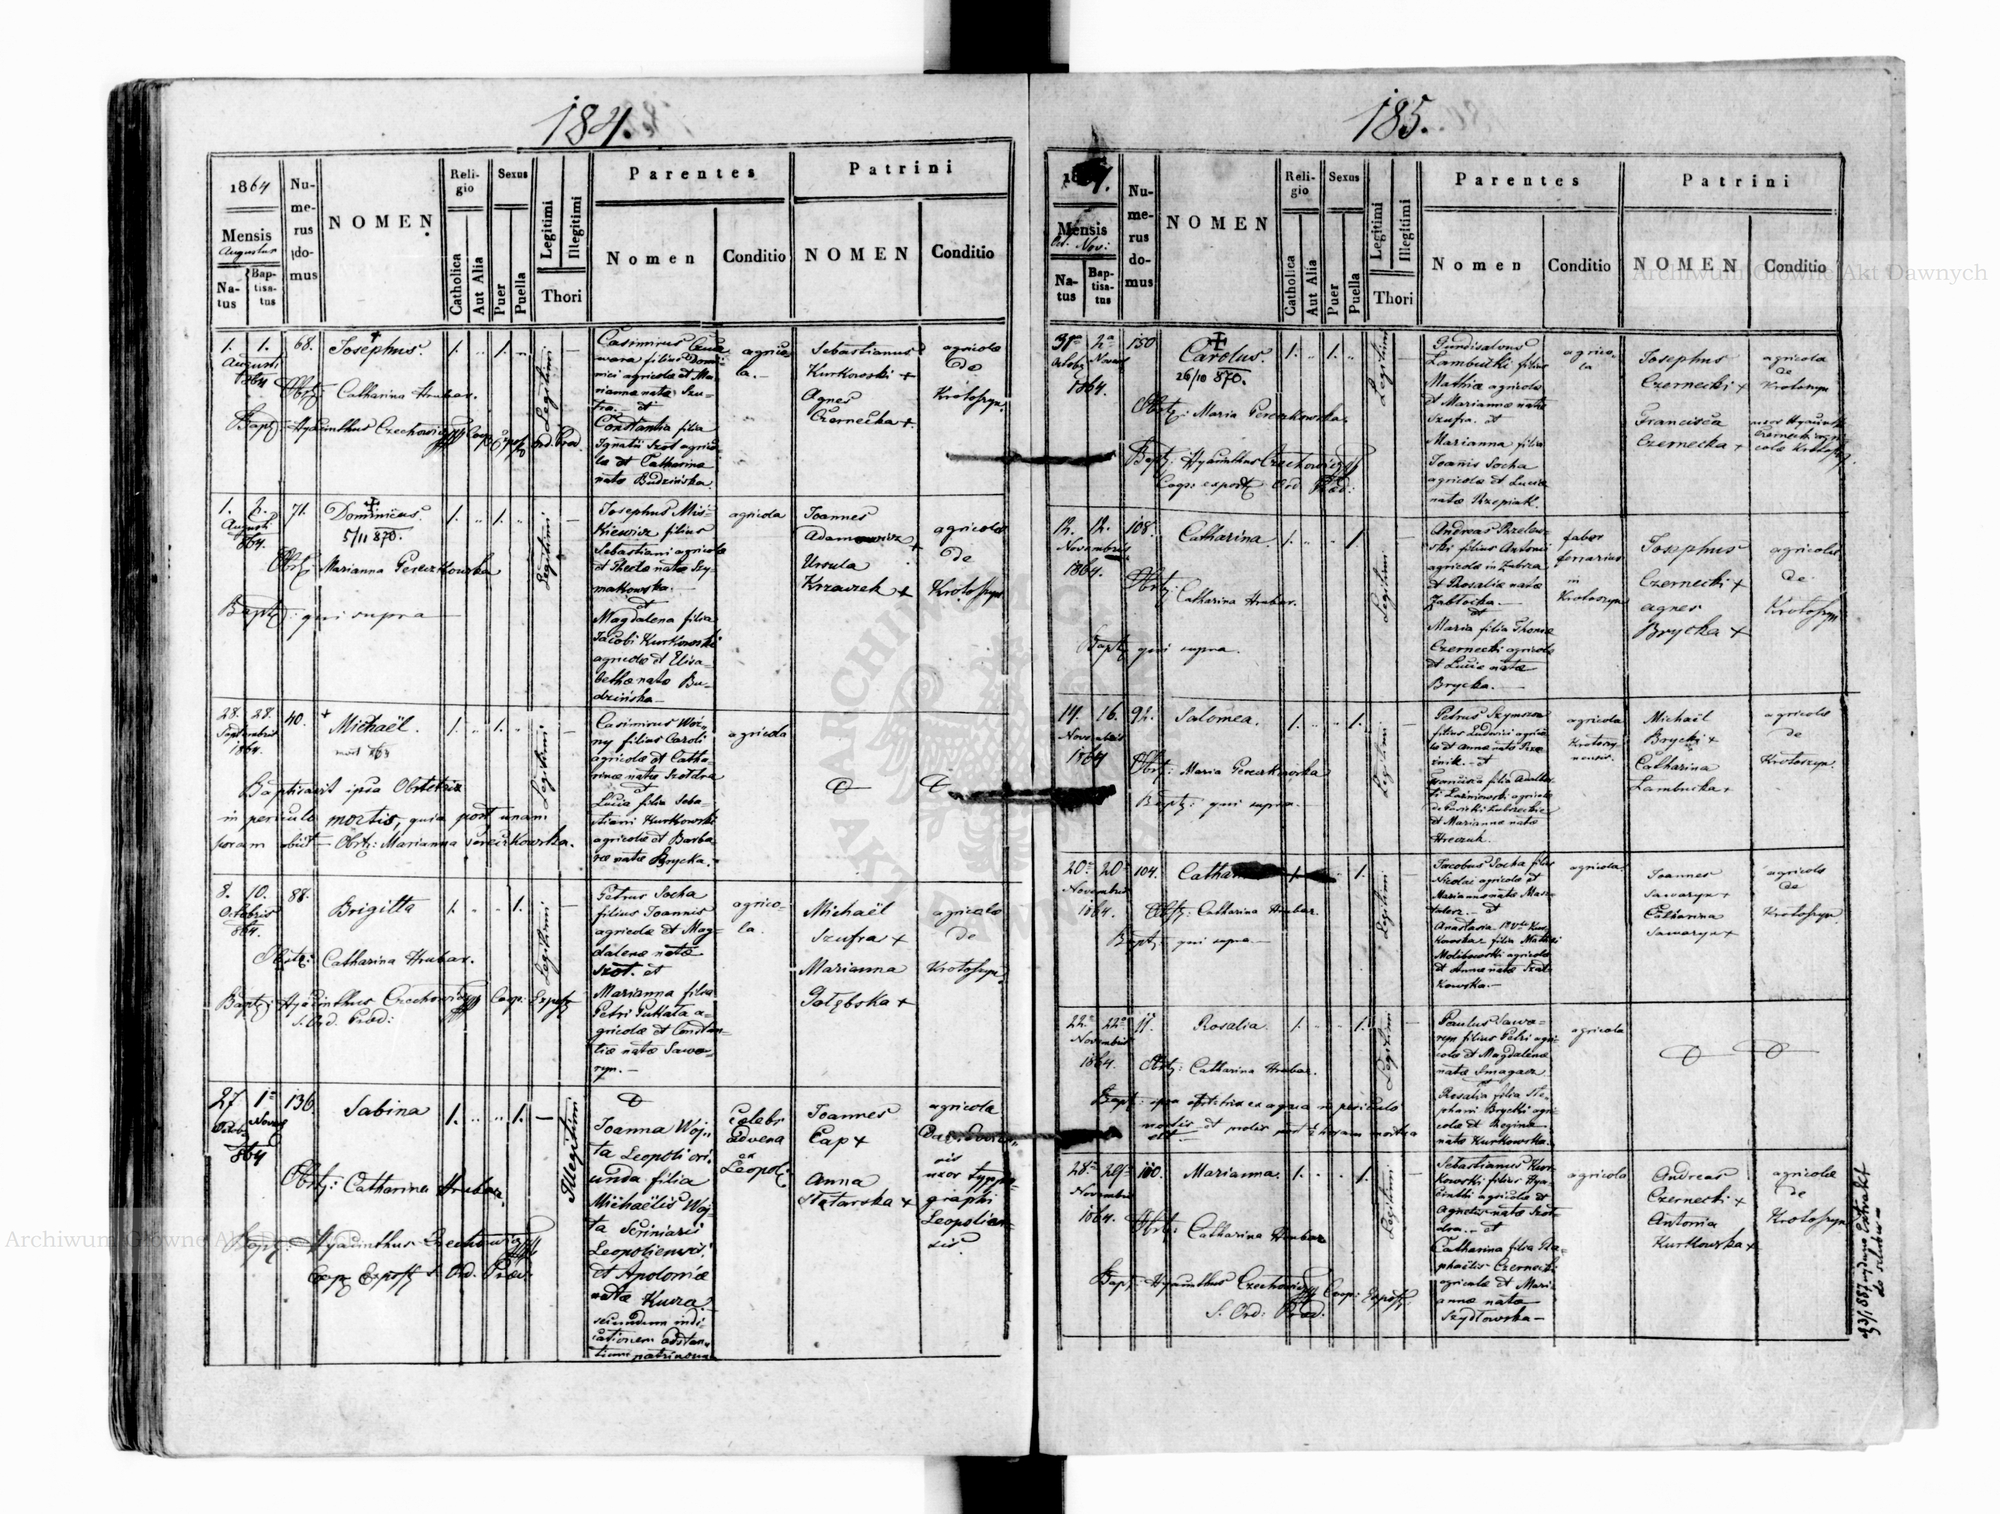 184.
1864
Mensis
Augustus
Na-
tus
Bap-
tisa-
tus
Nu-
me-
rus
do-
mus
NOMEN
Reli-
gio
Catholica
Aut Alia
Sexus
Puer
Puella
Legitimi
Illegitimi
Thori
Parentes
Nomen
Conditio
Patrini
NOMEN
Conditio
1. 1.
Augusti
1864
68.
Josephus.
1. „ 1. „
Legitimi
Obst: Catharina Hrabar.
Bapt: Hyacinthus Czechowicz
Casimirus
wara filius Domi-
nici agricola et Ma-
rianna nata Szu-
fra. – et
Constantia filia
Ignatii Szot agrico-
la et Catharina
nata Budzińska.
agrico-
la. –
Sebastianus
Kurkowski +
Agnes
Czernecka +
agricola
de
Krotoszyn.
1. 2.
Augusti
864.
71.
Dominicus.
5/11 870.
1. „ 1. „
Legitimi
Obst: Marianna Gereczkowska
Bapt: qui supra
Josephus Mis-
kiewicz filius
Sebastiani agricola
et Thecla nata Szy-
makowska. –
et
Magdalena filia
Jacobi Kurkowski
agricola et Elisa-
betha nata Bu-
dzińska –
agricola
Joannes
Adamowicz +
Ursula
Krawzek +
agricola
de
Krotoszyn
28. 28.
Septembris
1864.
40.
Michaël.
1. „ 1. „
Legitimi
Baptisavit ipsa Obstetrix
in periculo mortis, quia post unam
horam obiit – Obst: Marianna Gereczkowska.
Casimirus Woj-
ny filius Caroli
agricola et Catha-
rina nata Szotdra
et
Lucia filia Seba-
stiani Kurkowski
agricola et Barba-
ra nata Brycka. –
agricola
8. 10.
Octobris
864.
88.
Brigitta
1. „ „ 1.
Legitimi
Obst: Catharina Hrabar.
Bapt: Hyacinthus Czechowicz Coop: Expost
S. Ord. Præd:
Petrus Socha
filius Joannis
agricola et Mag-
dalena nata
Szot. et
Marianna filia
Petri Pukala a-
gricola et Constan-
tia nata Sawa-
ryn. –
agrico-
la.
Michaël
Szufra +
Marianna
Gołębska +
agricola
de
Krotoszyn.
27 1a
864
136
Sabina
1. „ „ 1.
Illegitimi
Obst: Catharina Hrabar
Bapt: Hyacinthus Czechowicz
Coop Expost S. Ord. Præd.
Joanna Woj-
ta Leopoli ori-
unda filia
Michaëlis Woj-
ta Scriniarii
Leopoliensis,
et Apolonia
nata Kucza.
secundum indi-
cationem adstan-
tium patrinorum
Celebs
advena
ex
Leopol.
Joannes
Cap +
Anna
Statarska +
agricola
uxor typo-
graphi
Leopolien-
sis.
185.
Mensis
Oct. Nov:
Na-
tus
Bap-
tisa-
tus
Nu-
me-
rus
do-
mus
NOMEN
Reli-
gio
Catholica
Aut Alia
Sexus
Puer
Puella
Legitimi
Illegitimi
Thori
Parentes
Nomen
Conditio
Patrini
NOMEN
Conditio
31a 2a
1864.
150
Carolus.
26/10 870.
1. „ 1. „
Legitimi
Obst: Maria Gereczkowska.
Bapt: Hyacinthus Czechowicz
Coop: expost Ord. Præd:
Gundisalvus
Lambucki filius
Mathia agricola
et Marianna nata
Szufra. et
Marianna filia
Joannis Socha
agricola et Lucia
nata Rzepiak.
agrico-
la
Josephus
Czernecki +
Francisca
Czernecka +
agricola
de
Krotoszyn
12. 12.
Novembris
1864.
108.
Catharina.
1. „ „ 1.
Legitimi
Obst: Catharina Hrabar.
Bapt: qui supra.
filius Antonii
agricola in Zubrza
et Rosalia nata
Zabłocka. –
et
Maria filia Thoma
Czernecki agricola
et Lucia nata
Brycka. –
faber
ferrarius
in
Krotoszyn
Josephus
Czernecki +
Agnes
Brycka +
agricola
de
Krotoszyn
14. 16.
Novembris
1864
92.
Salomea.
1. „ „ 1.
Legitimi
Obst: Maria Gereczkowska
Bapt: qui supra.
Petrus Szymczak
filius Ludwici agrico-
la et Anna nata
et
Francisca filia
et Marianna nata
Hreczuk.
agricola
Krotoszy-
nensis.
Michaël
Brycki +
Catharina
Lambucka +
agricola
de
Krotoszyn.
20a 20a
Novembris
1864.
104.
1. 1.
Legitimi
Obst: Catharina Hrabar.
Bapt: qui supra –
Jacobus Socha filius
Nicolai agricola et
Marianna nata
et
Anastasia
filia Mathiæ
Molibowski agricola
et Anna nata Szat-
kowska. –
agricola.
Joannes
Sawaryn +
Catharina
Sawaryn +
agricola
de
Krotoszyn
22a 22a
Novembris
1864.
Rosalia.
1. „ „ 1.
Legitimi
Obst: Catharina Hrabar.
Bapt: ipsa obstetrix ex aqua in periculo
mortis et
Paulus Sawa-
ryn filius Petri agri-
cola et Magdalena
nata Smagacz
et
Rosalia filia Ste-
phani Brycki agri-
cola et Regina
nata Kurkowska. –
agricola
28a 29a
Novembris
1864.
100.
Marianna.
1. „ „ 1.
Legitimi
Obst: Catharina Hrabar
Bapt: Hyacinthus Czechowicz Coop: Expost
S. Ord: Præd.
Sebastianus Kur-
kowski filius Hya-
cinthi agricola et
Agnetis nata Szot-
dra. – et
Catharina filia Ra-
phaëlis Czernecki
agricola et Mari-
anna nata
Szydłowska –
agricola
Andreas
Czernecki +
Antonia
Kurkowska +
agricola
de
Krotoszyn
23/1 887 wydano Extrakt
do szlubu
Archiwum Główne Akt Dawnych